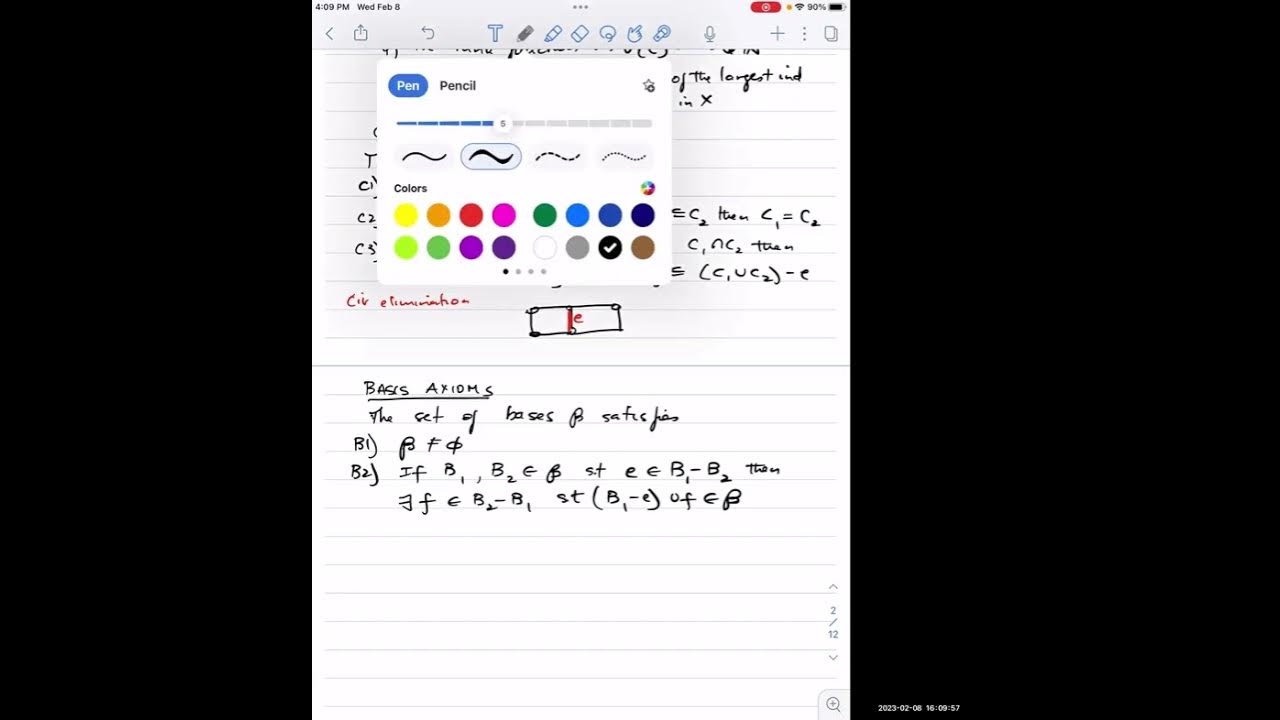 4:09 PM Wed Feb 8
90%
of the largest ind
in X
Pen Pencil
5
Colors
C1)
C2)
⊆ C₂ then C₁ = C₂
C3)
C₁ ∩ C₂ then
⊆ (C₁ ∪ C₂) - e
Cir elimination
e
BASIS AXIOMS
The set of bases β satisfies
B1) β ≠ φ
B2) If B₁, B₂ ∈ β st e ∈ B₁ - B₂ then
∃ f ∈ B₂ - B₁ st (B₁ - e) ∪ f ∈ β
2
/
12
2023-02-08 16:09:57